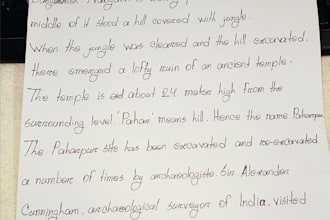 middle of it stood a hill covered with jungle.
When the jungle was cleared and the hill excavated.
there emerged a lofty ruin of an ancient temple.
The temple is about 24 meter high from the
surrounding level. 'Pahar' means hill. Hence the name Paharpur
The Paharpur site has been excavated and re-excavated
a number of times by archaeologists. Sir Alexander
Cunningham, archaeological surveyor of India, visited